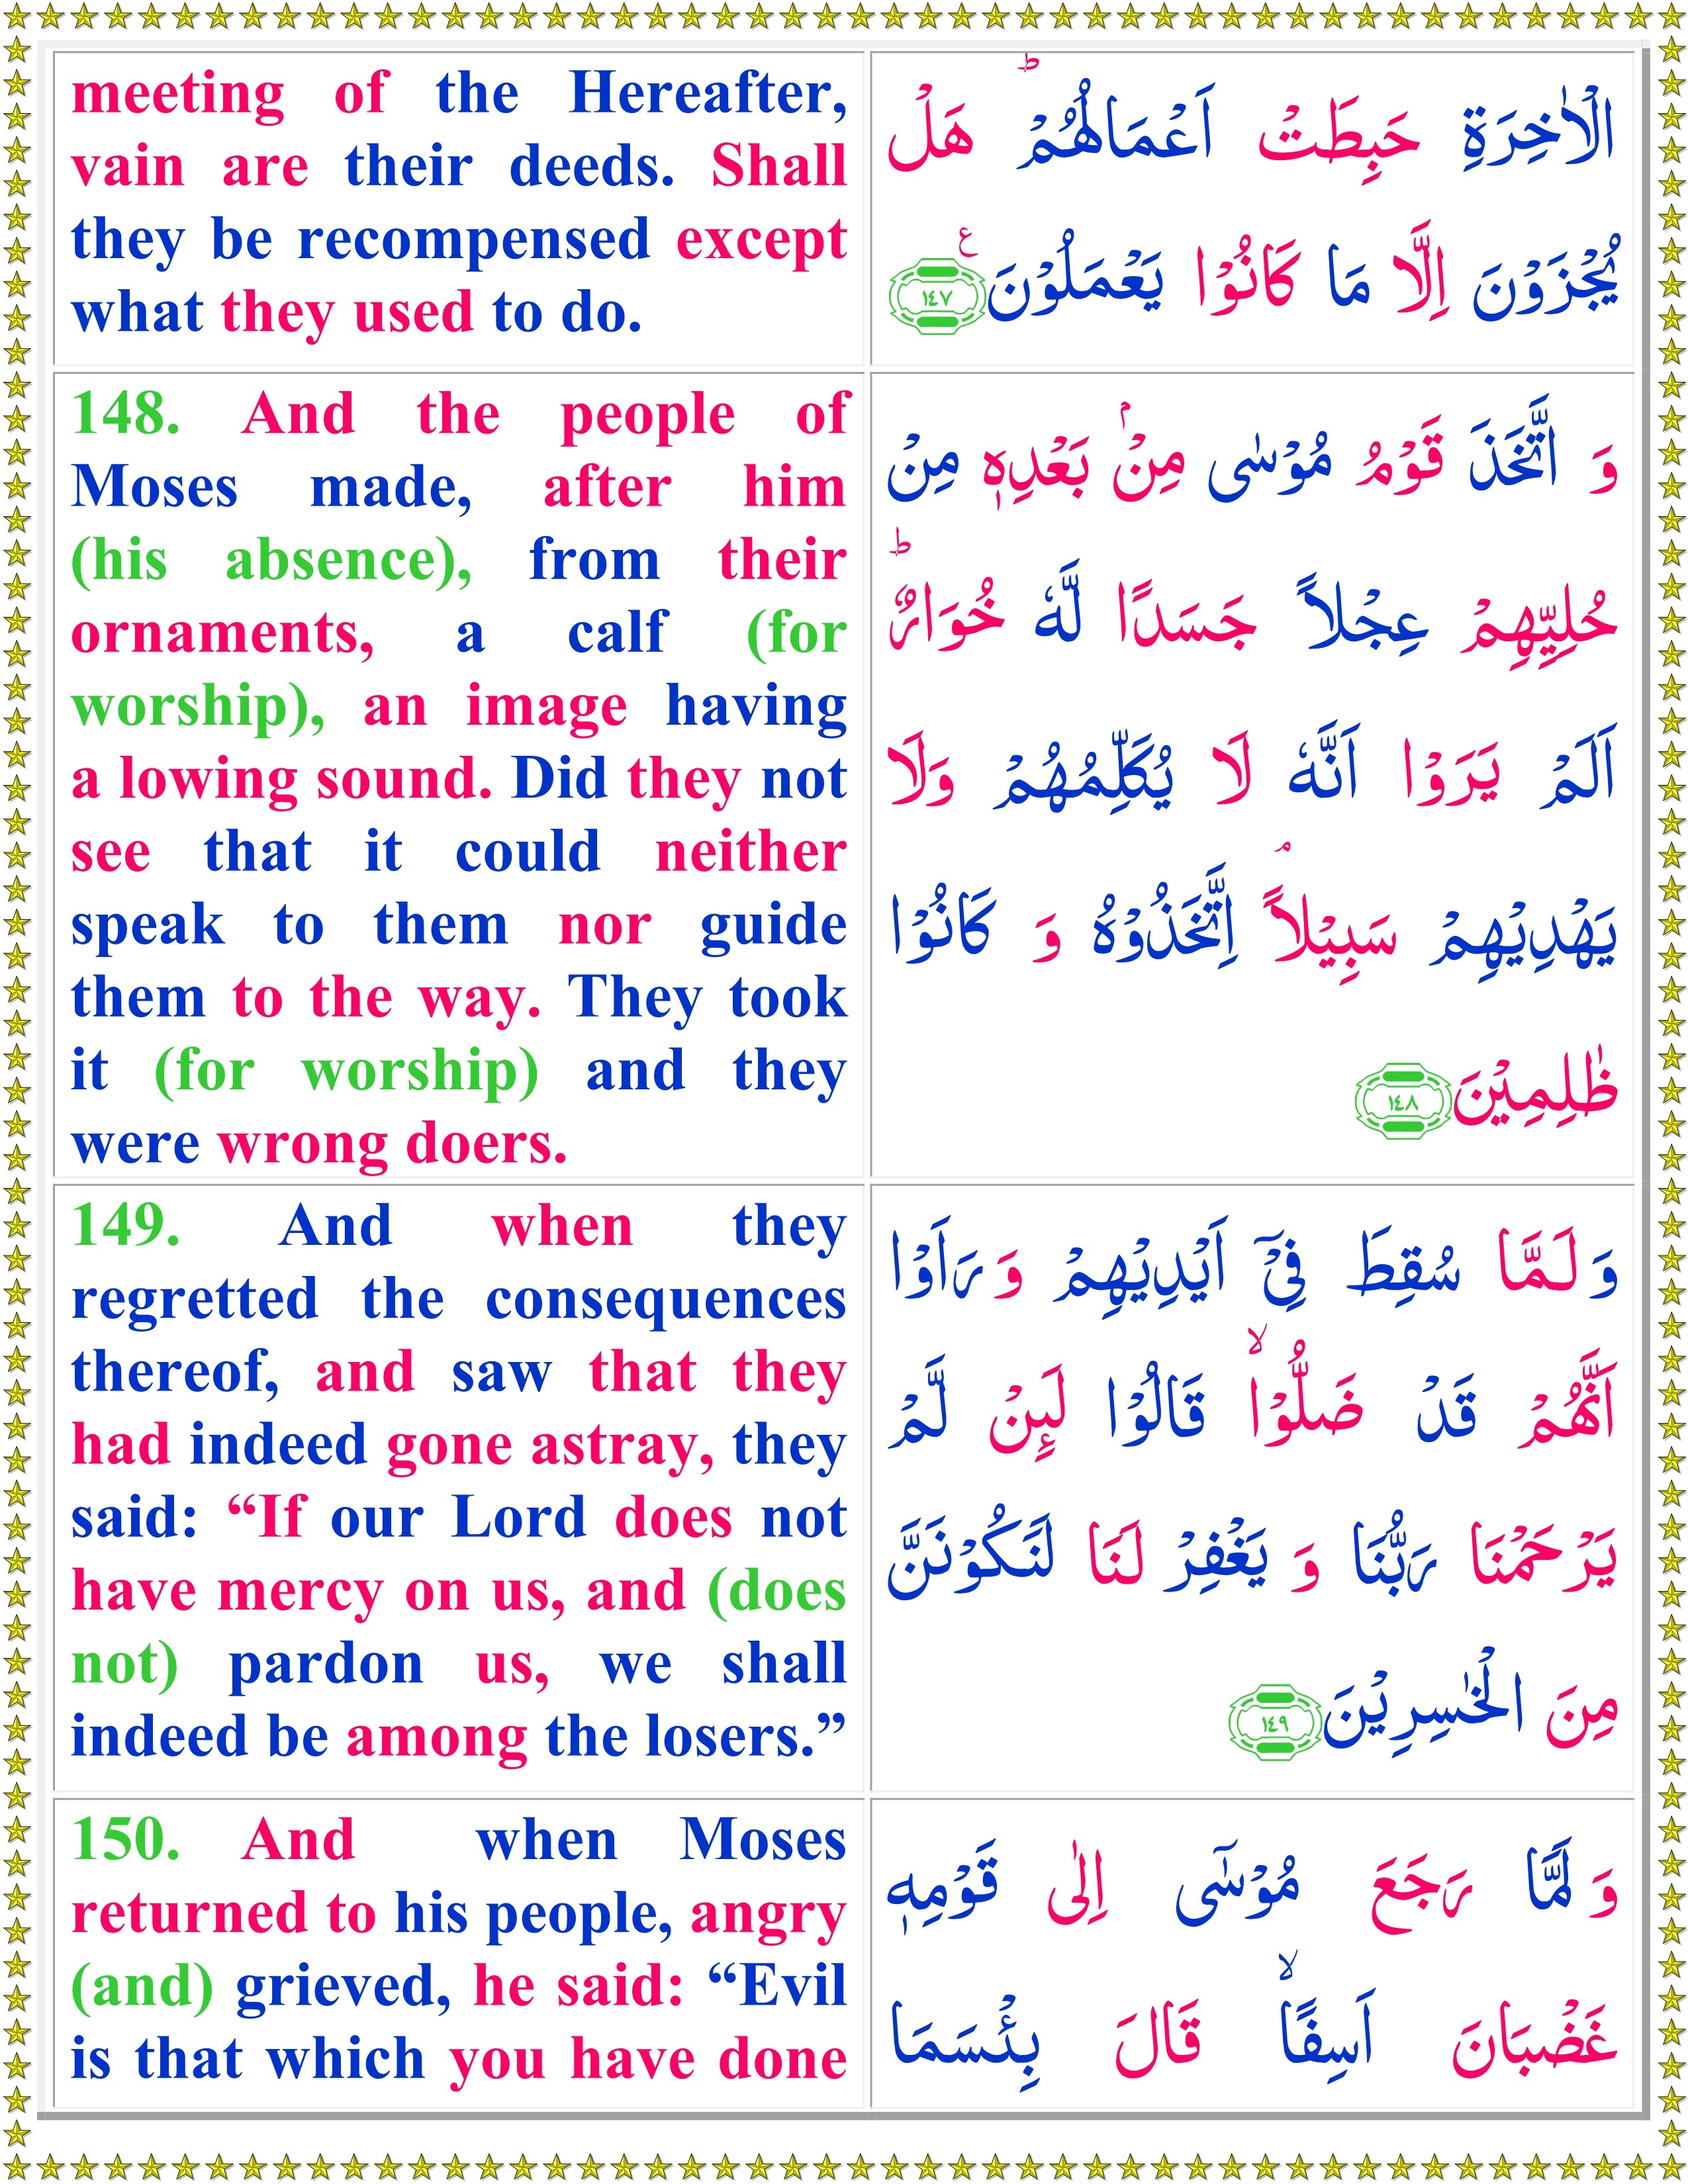 meeting of the Hereafter,
vain are their deeds. Shall
they be recompensed except
what they used to do.
الْاٰخِرَةِ حَبِطَتْ اَعْمَالُهُمْ ؕ هَلْ
يُجْزَوْنَ اِلَّا مَا كَانُوْا يَعْمَلُوْنَ ۧ ١٤٧
148. And the people of
Moses made, after him
(his absence), from their
ornaments, a calf (for
worship), an image having
a lowing sound. Did they not
see that it could neither
speak to them nor guide
them to the way. They took
it (for worship) and they
were wrong doers.
وَ اتَّخَذَ قَوْمُ مُوْسٰى مِنْۢ بَعْدِهٖ مِنْ
حُلِيِّهِمْ عِجْلاً جَسَدًا لَّهٗ خُوَارٌ ؕ
اَلَمْ يَرَوْا اَنَّهٗ لَا يُكَلِّمُهُمْ وَلَا
يَهْدِيْهِمْ سَبِيْلاً ۘ اِتَّخَذُوْهُ وَ كَانُوْا
ظٰلِمِيْنَ ١٤٨
149. And when they
regretted the consequences
thereof, and saw that they
had indeed gone astray, they
said: “If our Lord does not
have mercy on us, and (does
not) pardon us, we shall
indeed be among the losers.”
وَ لَمَّا سُقِطَ فِىْۤ اَيْدِيْهِمْ وَ رَاَوْا
اَنَّهُمْ قَدْ ضَلُّوْا ۙ قَالُوْا لَىِٕنْ لَّمْ
يَرْحَمْنَا رَبُّنَا وَ يَغْفِرْ لَنَا لَنَكُوْنَنَّ
مِنَ الْخٰسِرِيْنَ ١٤٩
150. And when Moses
returned to his people, angry
(and) grieved, he said: “Evil
is that which you have done
وَ لَمَّا رَجَعَ مُوْسٰٓى اِلٰى قَوْمِهٖ
غَضْبَانَ اَسِفًا ۙ قَالَ بِئْسَمَا